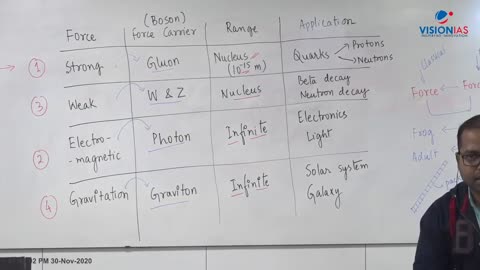 VISIONIAS
INSPIRING INNOVATION
Force
(Boson)
Force Carrier
Range
Application
1
Strong
Gluon
Nucleus
(10⁻¹⁵ m)
Quarks
Protons
Neutrons
3
Weak
W & Z
Nucleus
Beta decay
Neutron decay
2
Electro-
-magnetic
Photon
Infinite
Electronics
Light
4
Gravitation
Graviton
Infinite
Solar system
Galaxy
Classical
Force
Frog
Adult
PM 30-Nov-2020